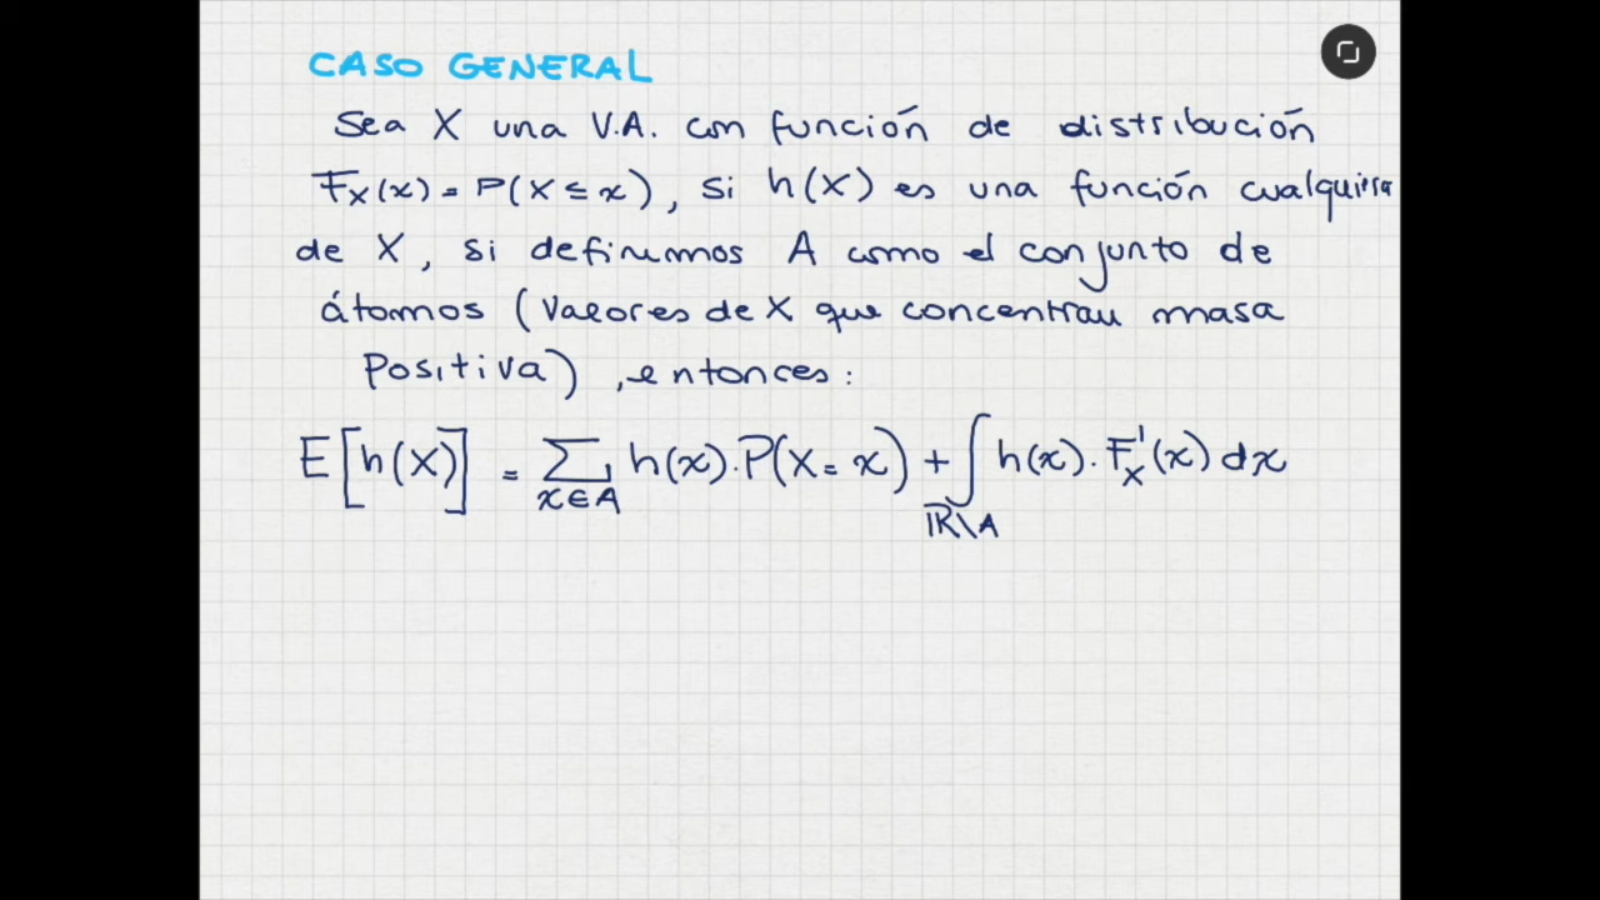 CASO GENERAL
Sea X una V.A. con función de distribución
F_X(x) = P(X ≤ x), si h(X) es una función cualquiera
de X, si definimos A como el conjunto de
átomos (Valores de X que concentran masa
Positiva), entonces:
E[h(X)] = ∑_{x∈A} h(x)·P(X=x) + ∫_{ℝ\A} h(x)·F'_X(x) dx